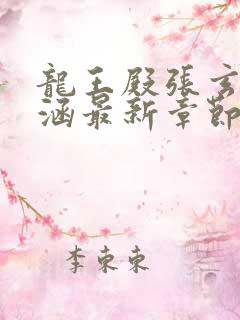 龍王殿張玄
涵最新章節
李東東